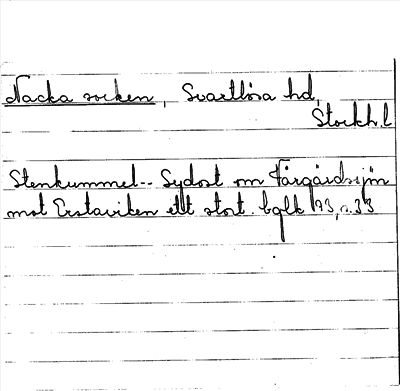 Nacka socken, Svartlösa hd,
Stockh.l
Stenkummel-- Sydost om Fårgårdsjön
mot Erstaviken ett stort. bglk 193, s. 33